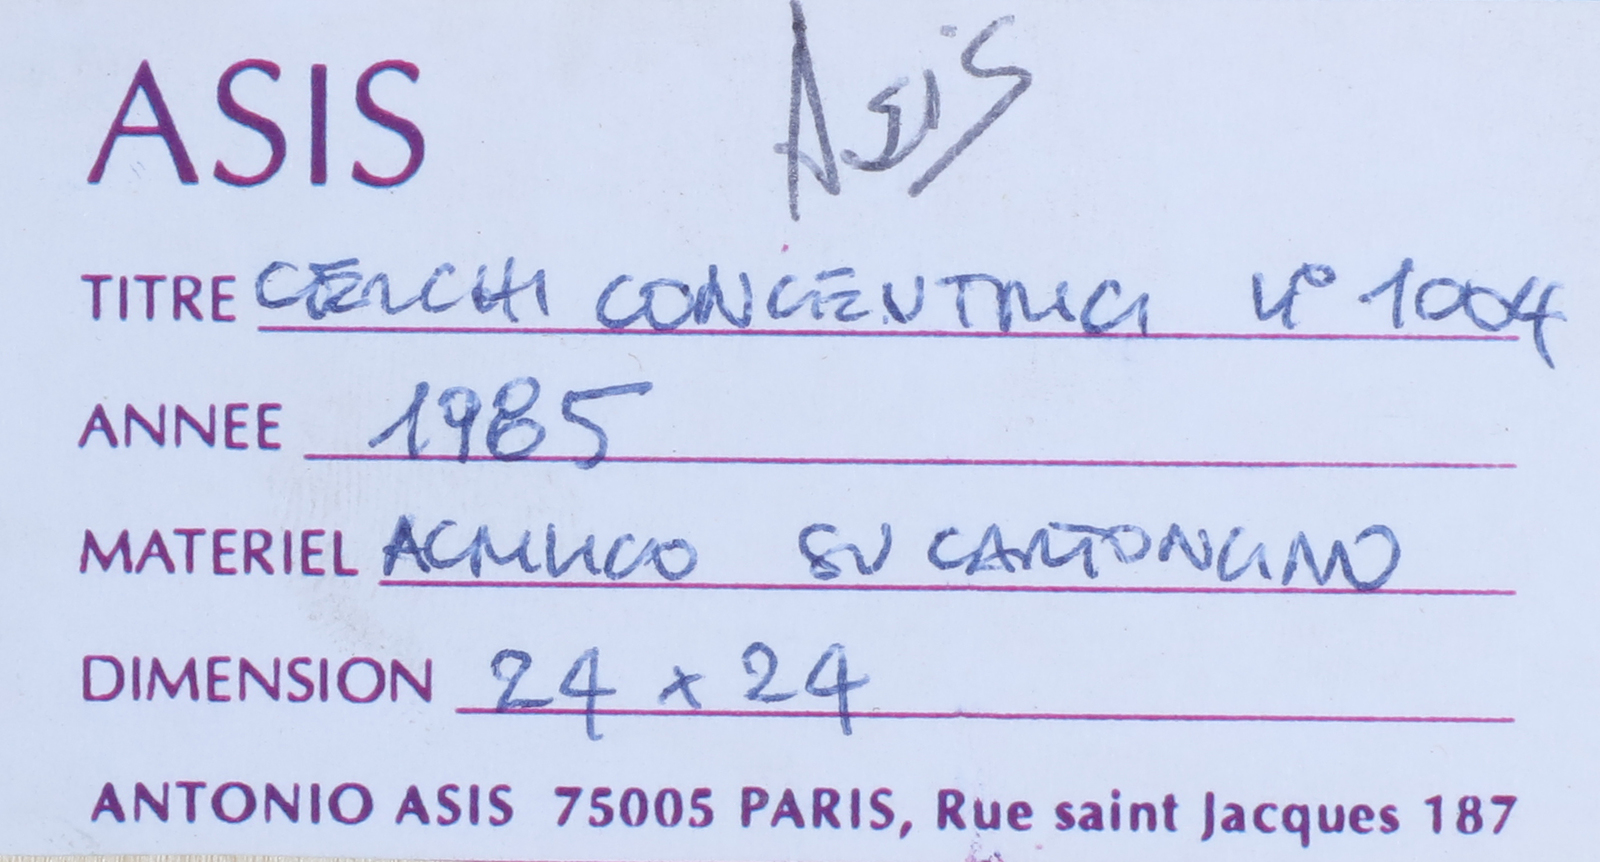 ASIS Asis
TITRE CERCHI CONCENTRICI N° 1004
ANNEE 1985
MATERIEL ACRILICO SU CARTONCINO
DIMENSION 24 x 24
ANTONIO ASIS 75005 PARIS, Rue saint Jacques 187